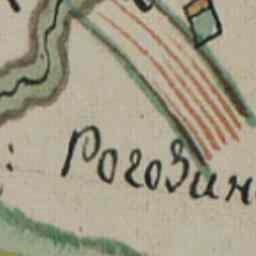 Рогозин